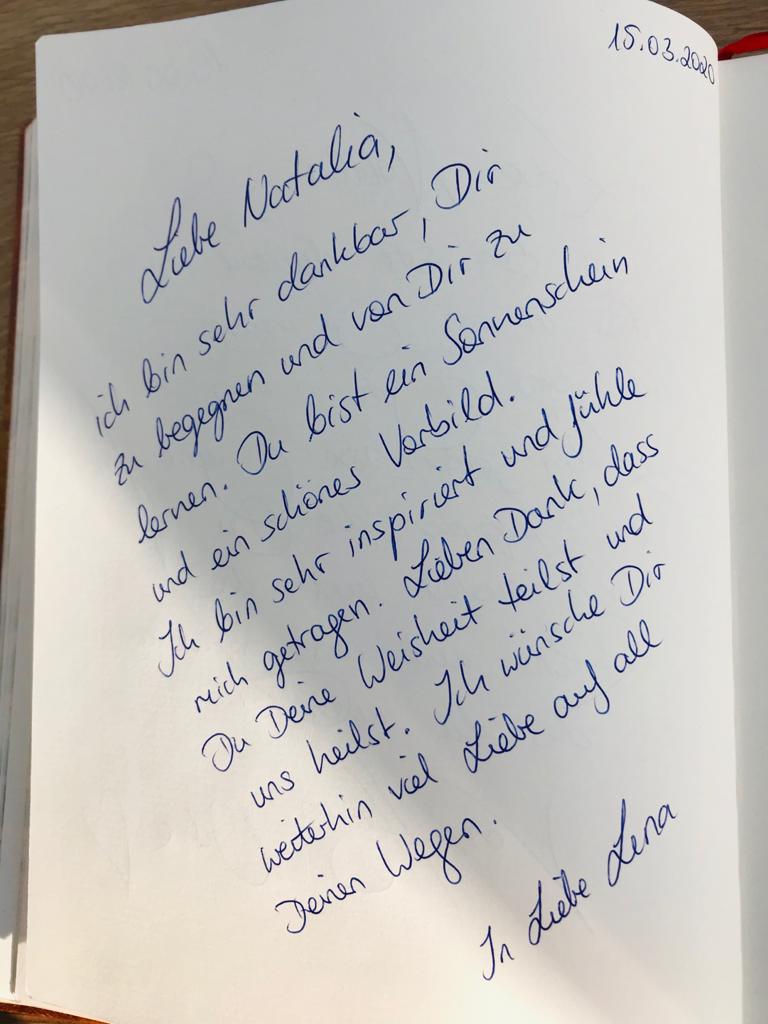 15.03.2020
Liebe Natalia,
ich bin sehr dankbar, Dir
zu begegnen und von Dir zu
lernen. Du bist ein Sonnenschein
und ein schönes Vorbild.
Ich bin sehr inspiriert und fühle
mich getragen. Lieben Dank, dass
Du Deine Weisheit teilst und
uns heilst. Ich wünsche Dir
weiterhin viel Liebe auf all
Deinen Wegen.
In Liebe Lena